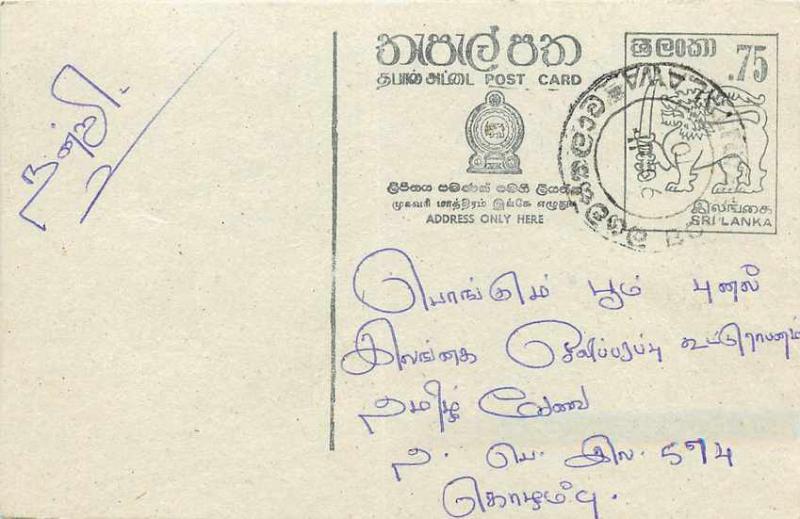 තැපැල් පත
தபால் அட்டை POST CARD
ශ්‍රී ලංකා
.75
ලිපිනය පමණක් මෙහි ලියන්න
முகவரி மாத்திரம் இங்கே எழுதுக
ADDRESS ONLY HERE
இலங்கை
SRI LANKA
நன்றி.
பொங்கும் பூம் புனல்
இலங்கை ஒலிபரப்பு கூட்டுதாபனம்
தமிழ் சேவை
த. பெ. இல. 574
கொழும்பு.